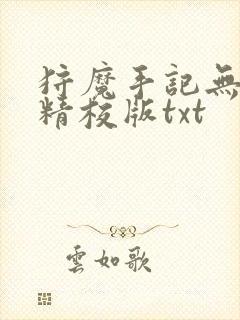 狩魔手記無
精校版txt
雲如歌